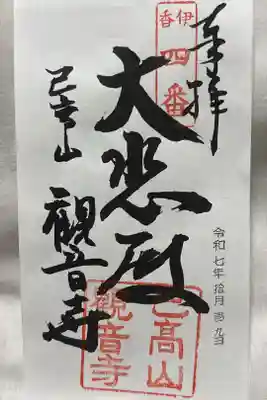 奉拝
伊香
四番
大悲殿
己高山
觀音寺
令和七年拾月 九日
己高山
觀音寺